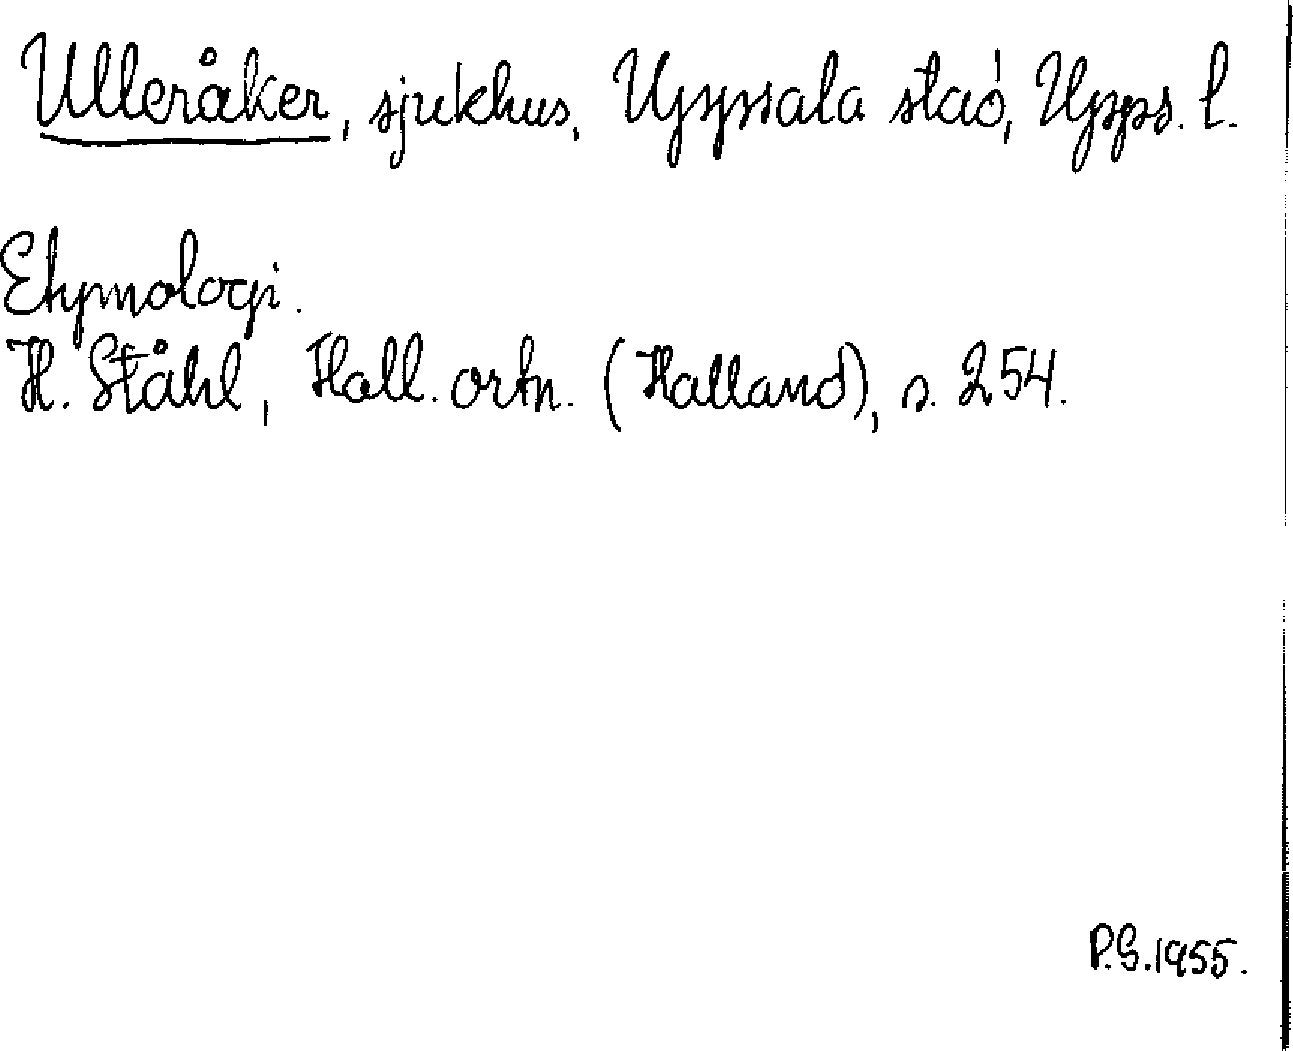 Ulleråker, sjukhus, Uppsala stad, Upps. l.
Etymologi.
H. Ståhl, Hall. ortn. (Halland), s. 254.
P.S. 1955.